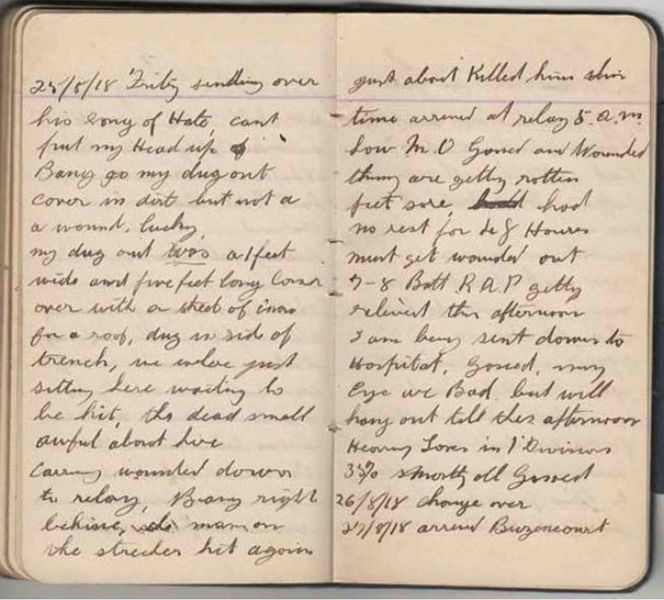 25/8/18 Fritz sending over
his song of Hate, cant
put my Head up
Bang go my dug out
cover in dirt but not a
a wound, lucky,
my dug out was a 1 feet
wide and five feet long Cover
over with a sheet of iron
for a roof, dug in side of
trench, we  just
sitting here waiting to
be hit, the dead small
awful about here
Carring wounded down
to relay, Bang right
behine, man on
the strecher hit again
just about Killed him this
time arrived at relay 5. a.m.
how M.O Gassed and Wounded
thing are getty rotten
feet sore, had
no rest for 48 Houres
must get wounded out
7-8 Batt R.A.P getty
relieved this afternoon
I am being sent down to
Hospital, Gassed, my
Eye are Bad. but will
hang out till this afternoon
Heavey Loses in 1 Division
35% mostly all Gassed
26/8/18 change over
27/8/18 arrived Buzencourt